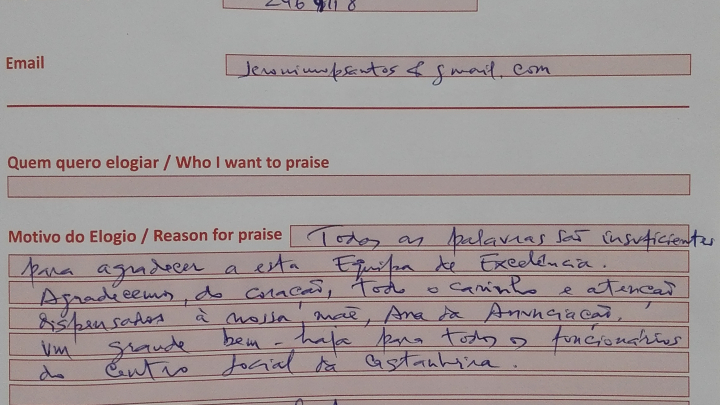 Email jeronimopsantos@gmail.com
Quem quero elogiar / Who I want to praise
Motivo do Elogio / Reason for praise Todas as palavras são insuficientes
para agradecer a esta Equipa de Excelência.
Agradecemos, do coração, todo o carinho e atenção
dispensados à nossa mãe, Ana da Anunciação.
Um grande bem-haja para todos os funcionários
do Centro Social da Castanheira.